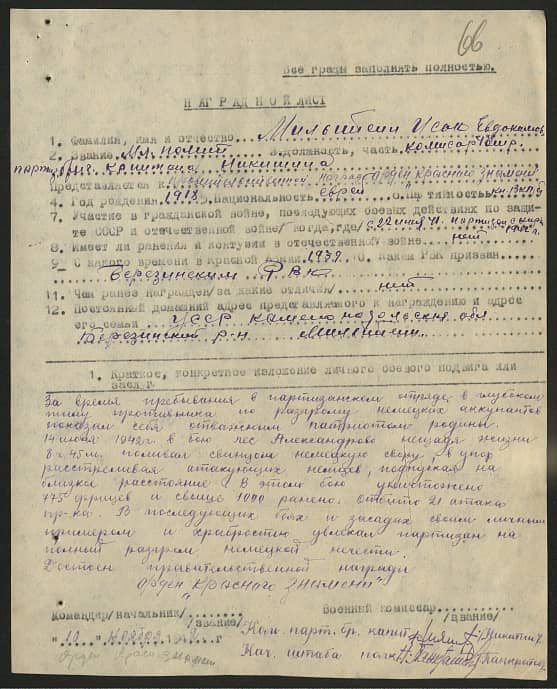 66
Все графы заполнять полностью.
НАГРАДНОЙ ЛИСТ
1. Фамилия, имя и отчество Мильштейн Исаак
2. Звание Мл. полит должность, часть комисар
Никитина
Представляется к Правительственной награде "Орден Красное Знамя"
4. Год рождения 1918 5. Национальность еврей 6. Партийность
7. Участие в гражданской войне, последующих боевых действиях по защи-
те СССР и отечественной войне/когда, где/ с 22 июня 41.
8. Имеет ли ранения и контузии в отечественной войне нет
9. С какого времени в Красной Армии 1939 10. Каким РВК призван
Березинским РВК
11. Чем ранее награжден/за какие отличия/ нит
12. Постоянный домашний адрес представляемого к награждению и адрес
его семьи УССР обл
Березинский р-н
1. Краткое, конкретное изложение личного боевого подвига или
заслуг
За время пребывания в партизанском отряде в глубоком
тылу противника по разгрому немецких аккупантов
показал себя отважным патриотом родины.
14 июля 1942г. в бою лес Александрово нещадя жизни
8 ч. 45 м. поливал свинцом немецкую свору, в упор
расстреливая атакующих немцев, подпуская на
близкое расстояние. В этом бою уничтожено
475 фрицев и свыше 1000 ранено. Отбито 21 атака
пр-ка. В последующих боях и засадах своим личным
примером и храбростью увлекал партизан на
полный разгром немецкой нечести.
Достоен правительственной награды
"орден красного знамени"
Командир/начальник/ Военный комиссар
/звание/ /звание/
"10" г
Ком. парт. бр. капит /Никитин/
Нач. штаба полк. /Панкратов/
Орден Красн знамени